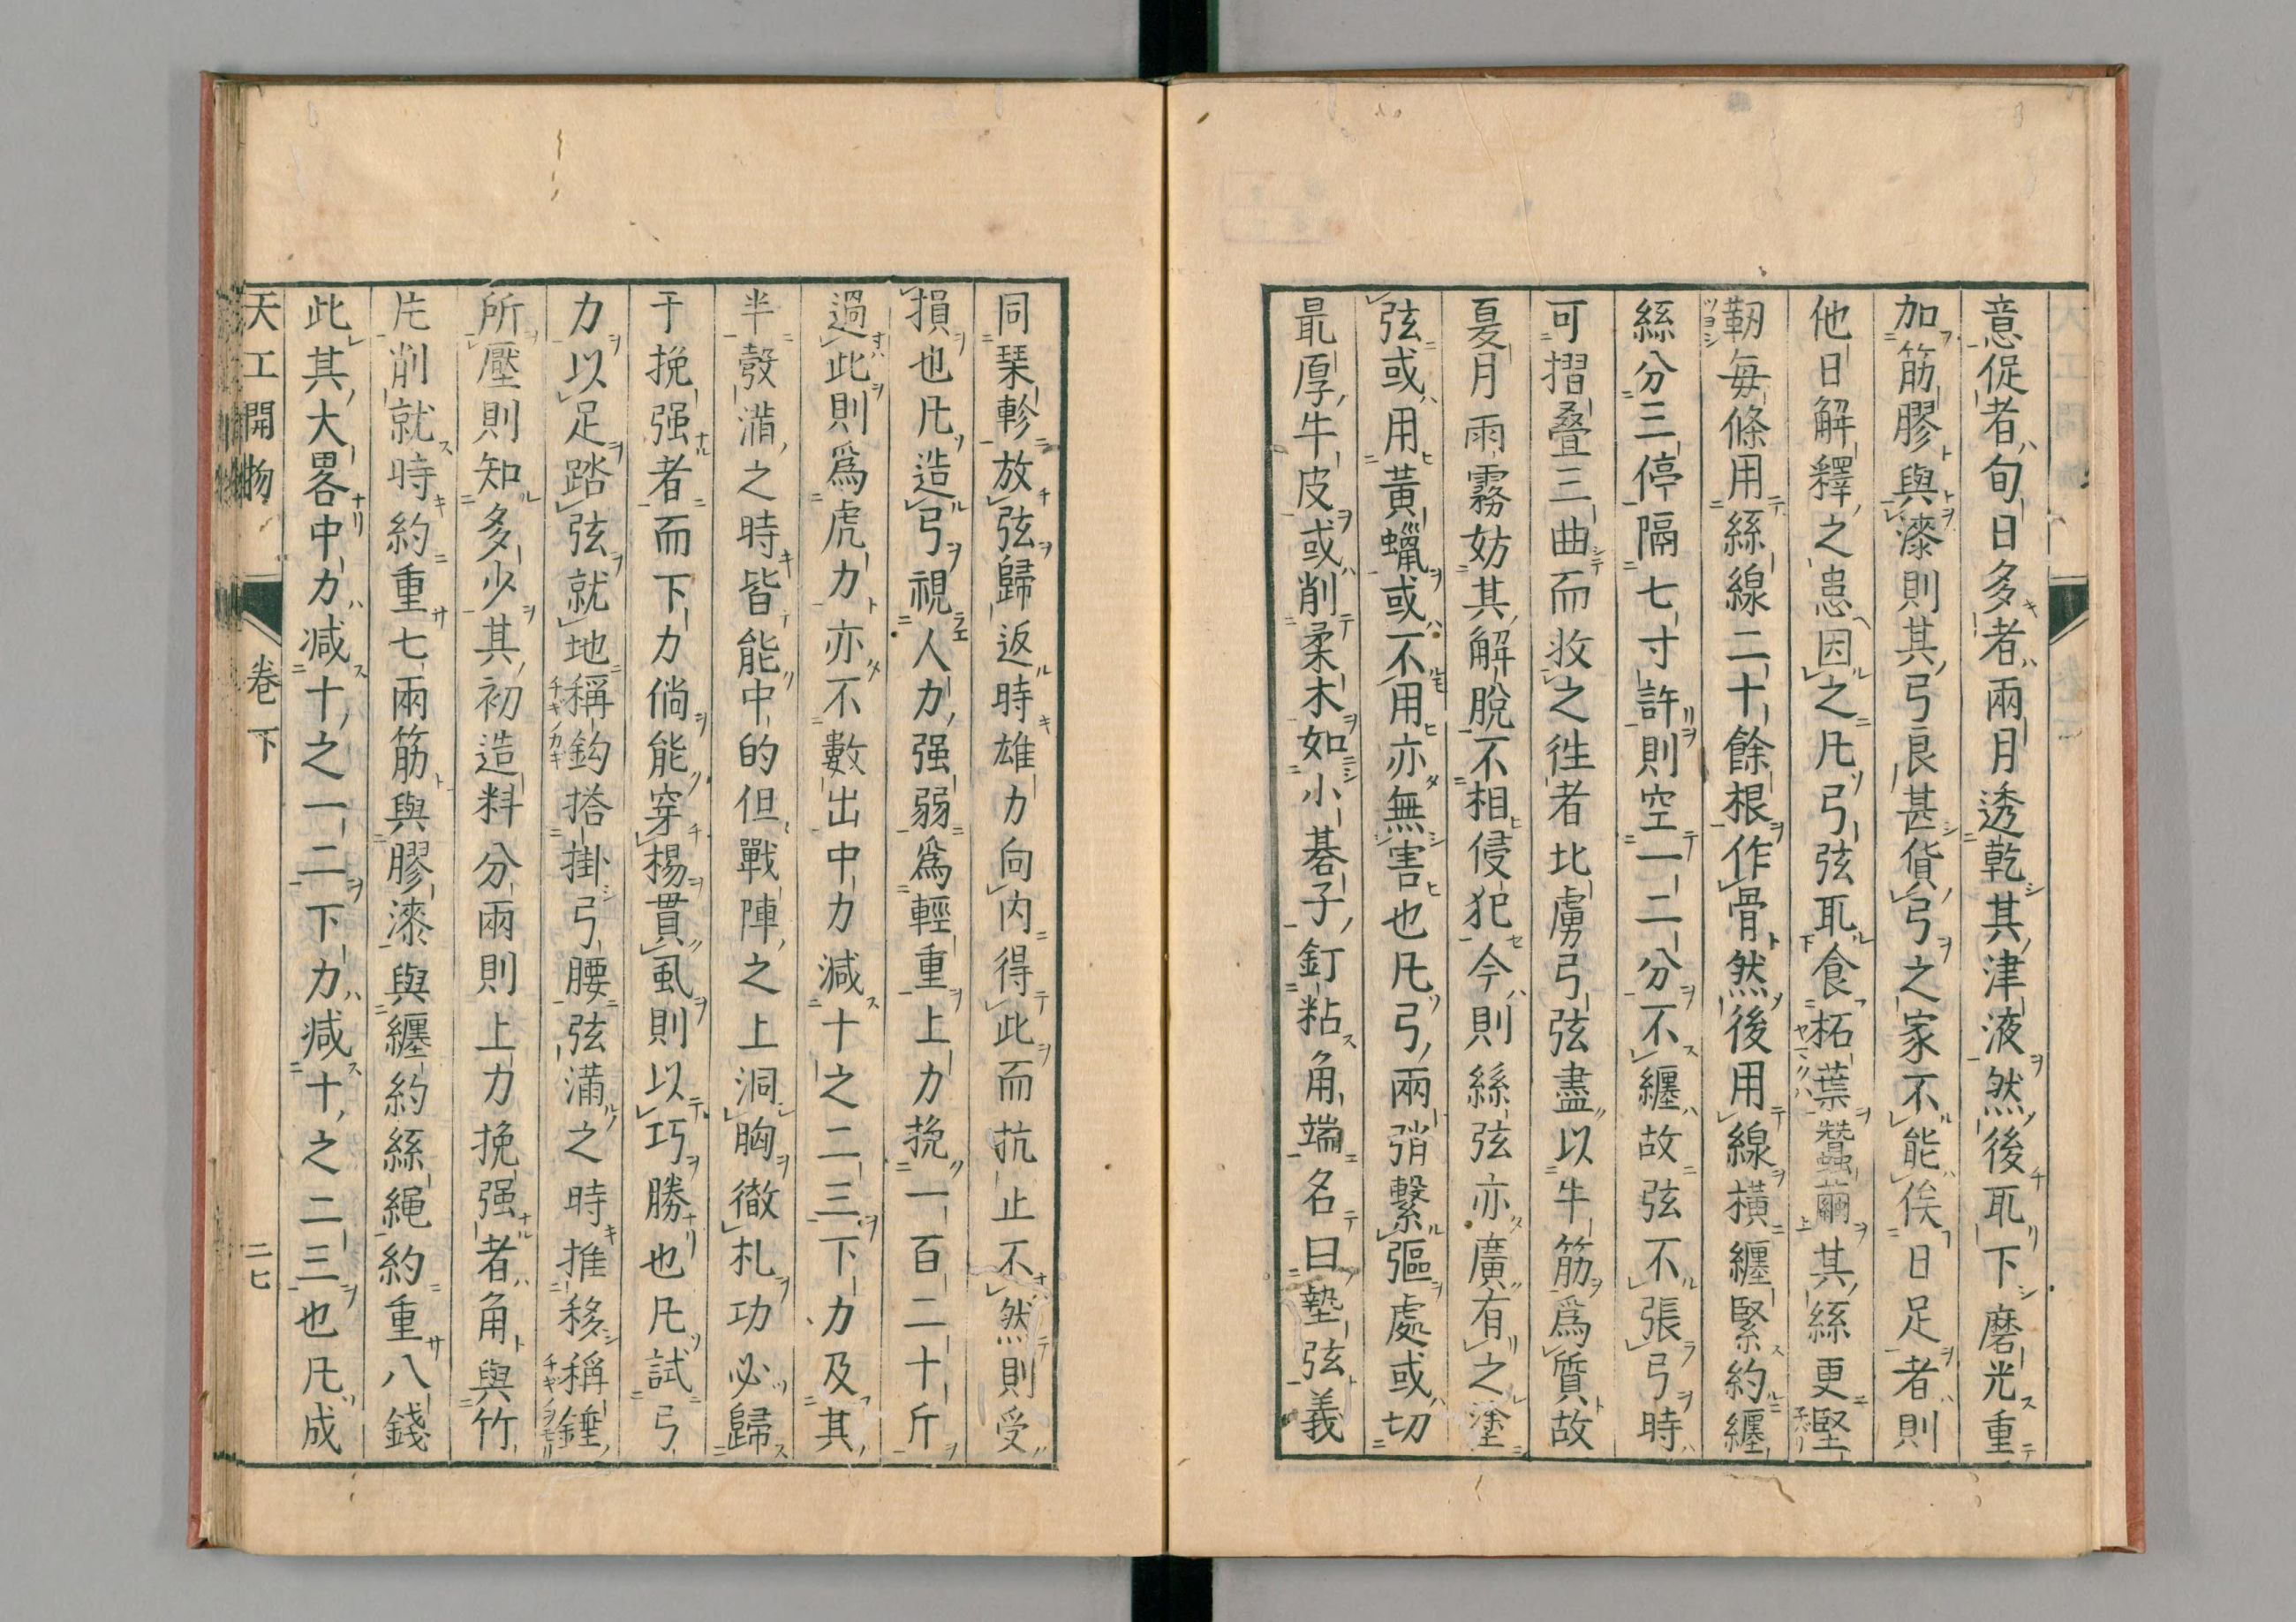 意促者旬日多者兩月透乾其津液然後取下磨光重
加筋膠與漆則其弓良甚貨弓之家不能俟日足者則
他日解釋之患因之凡弓弦取食柘葉蠶繭其絲更堅
韌每條用絲線二十餘根作骨然後用線橫纏緊約纏
絲分三停隔七寸許則空一二分不纏故弦不張弓時
可摺疊三曲而收之徃者北虜弓弦盡以牛筋爲質故
夏月雨霧妨其解脫不相侵犯今則絲弦亦廣有之塗
弦或用黃蠟或不用亦無害也凡弓兩弰繫彄處或切
最厚牛皮或削柔木如小碁子釘粘角端名曰墊弦義
同琹軫放弦歸返時雄力向內得此而抗止不然則受
損也凡造弓視人力强弱爲輕重上力挽一百二十斤
過此則爲虎力亦不數出中力減十之二三下力及其
半彀滿之時皆能中的但戰陣之上洞胸徹札功必歸
于挽强者而下力倘能穿楊貫虱則以巧勝也凡試弓
力以足踏弦就地稱鈎搭掛弓腰弦滿之時推移稱錘
所壓則知多少其初造料分兩則上力挽强者角與竹
片削就時約重七兩筋與膠漆與纏約絲繩約重八錢
此其大畧中力減十之一二下力減十之二三也凡成
天工開物 卷下 二七